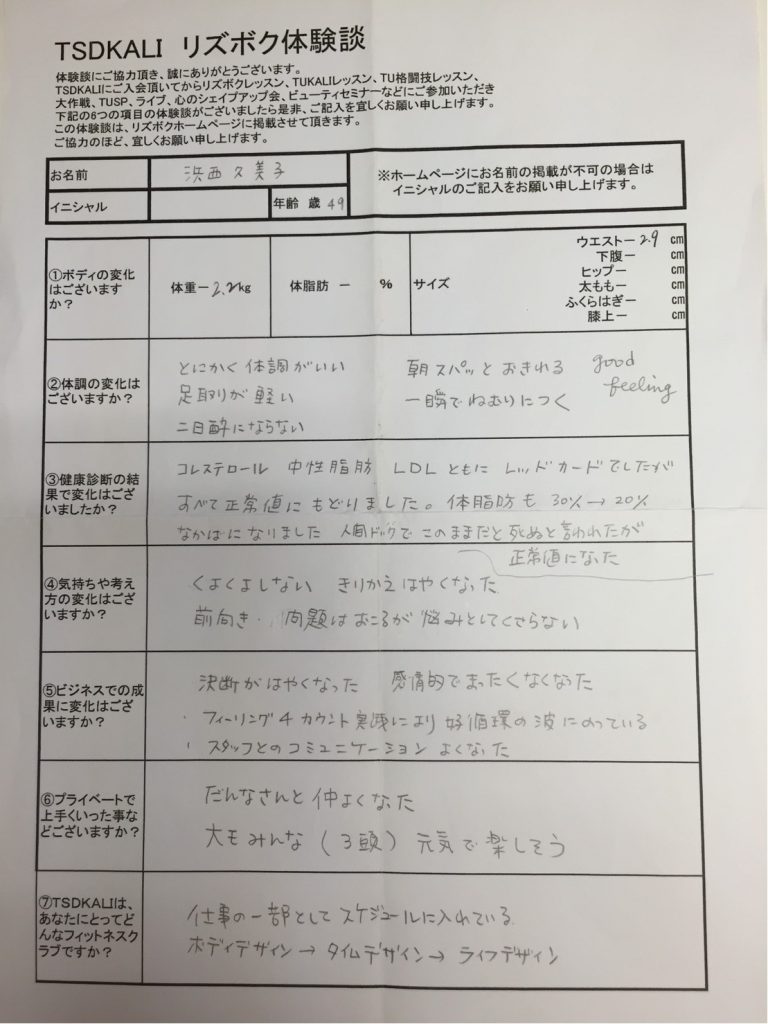 TSDKALI リズボク体験談
体験談にご協力頂き、誠にありがとうございます。
TSDKALIにご入会頂いてからリズボクレッスン、TUKALIレッスン、TU格闘技レッスン、
大作戦、TUSP、ライブ、心のシェイプアップ会、ビューティセミナーなどにご参加いただき
下記の6つの項目の体験談がございましたら是非、ご記入を宜しくお願い申し上げます。
この体験談は、リズボクホームページに掲載させて頂きます。
ご協力のほど、宜しくお願い申し上げます。
お名前 浜西久美子
※ホームページにお名前の掲載が不可の場合は
イニシャルのご記入をお願い申し上げます。
イニシャル 年齢 歳 49
①ボディの変化
はございます
か?
体重ー2.2kg 体脂肪 ー % サイズ
ウエストー2.9 cm
下腹ー cm
ヒップー cm
太ももー cm
ふくらはぎー cm
膝上ー cm
②体調の変化は
ございますか?
とにかく体調がいい 朝スパッとおきれる good
足取りが軽い 一瞬でねむりにつく feeling
二日酔にならない
③健康診断の結
果で変化はござ
いましたか?
コレステロール 中性脂肪 LDL ともに レッドカードでしたが
すべて正常値にもどりました。体脂肪も 30%→20%
なかばになりました 人間ドックでこのままだと死ぬと言われたが
正常値になった
④気持ちや考え
方の変化はござ
いますか?
くよくよしない きりかえはやくなった
前向き・問題はおこるが悩みとしてくさらない
⑤ビジネスでの成
果に変化はござ
いますか?
決断がはやくなった 感情的でまったくなくなった
・フィーリング4カウント実践により好循環の波にのっている
・スタッフとのコミュニケーション よくなった
⑥プライベートで
上手くいった事な
どございますか?
だんなさんと仲よくなった
犬もみんな(3頭)元気で楽しそう
⑦TSDKALIは、
あなたにとってど
んなフィットネスク
ラブですか?
仕事の一部としてスケジュールに入れている
ボディデザイン→タイムデザイン→ライフデザイン